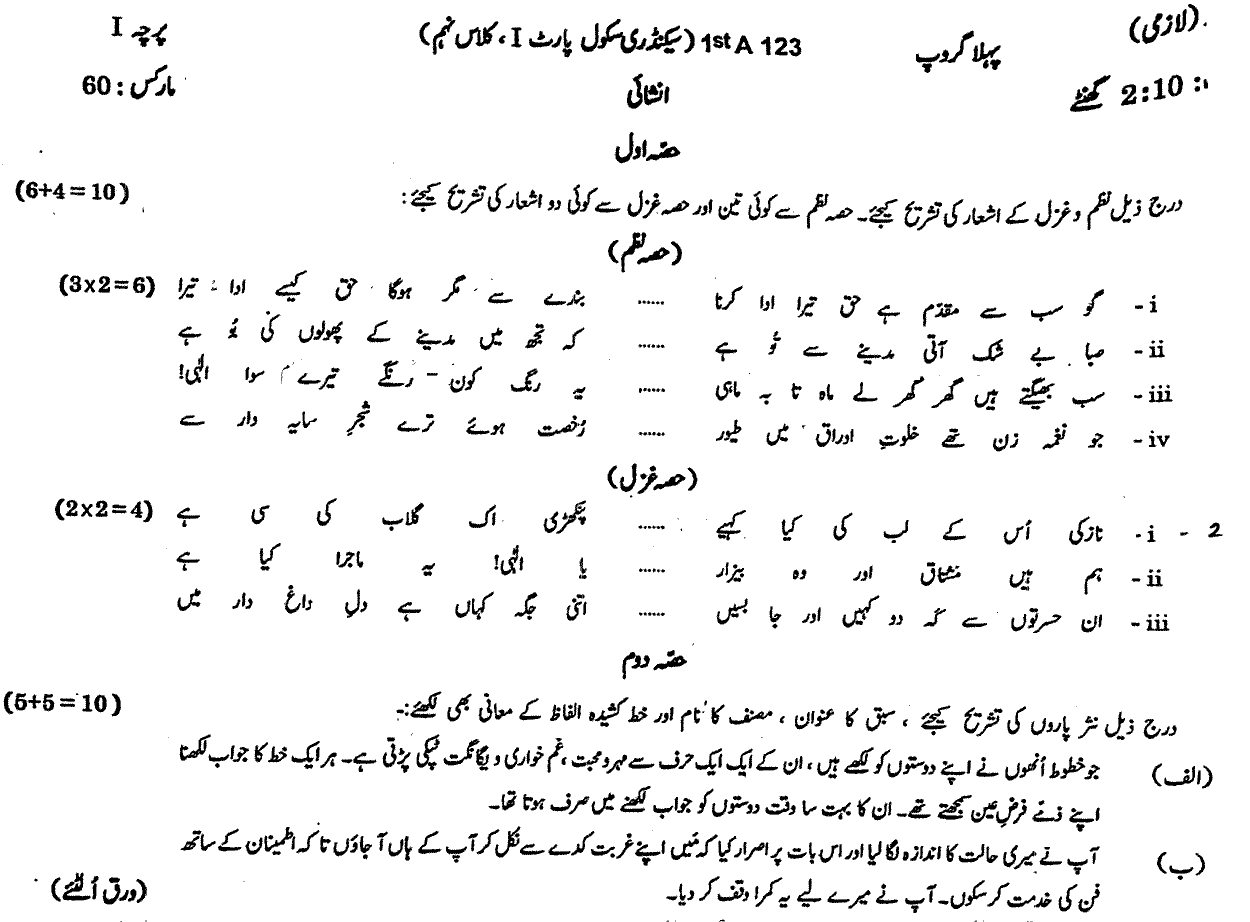 (لازمی) پہلا گروپ 1st A 123 (سیکنڈری سکول پارٹ I ، کلاس نہم) پرچہ I
2:10 گھنٹے انشائی مارکس : 60
حصہ اول
درج ذیل نظم و غزل کے اشعار کی تشریح کیجئے۔ حصہ نظم سے کوئی تین اور حصہ غزل سے کوئی دو اشعار کی تشریح کیجئے : (6+4=10)
(حصہ نظم)
i - گو سب سے مقدّم ہے حق تیرا ادا کرنا ...... بندے سے مگر ہوگا حق کیسے ادا تیرا (3x2=6)
ii - صبا بے شک آتی مدینے سے تُو ہے ...... کہ تجھ میں مدینے کے پھولوں کی بُو ہے
iii - سب بھیگتے ہیں گھر گھر لے ماہ تا بہ ماہی ...... یہ رنگ کون رنگے تیرے سوا الٰہی!
iv - جو نغمہ زن تھے خلوتِ اوراق میں طیور ...... رُخصت ہوئے ترے شجرِ سایہ دار سے
(حصہ غزل)
2 - i - نازکی اُس کے لب کی کیا کہیے ...... پنکھڑی اک گلاب کی سی ہے (2x2=4)
ii - ہم ہیں مشتاق اور وہ بیزار ...... یا الٰہی! یہ ماجرا کیا ہے
iii - ان حسرتوں سے کہ دو کہیں اور جا بسیں ...... اتنی جگہ کہاں ہے دلِ داغ دار میں
حصّہ دوم
درج ذیل نثر پاروں کی تشریح کیجئے ، سبق کا عنوان ، مصنف کا نام اور خط کشیدہ الفاظ کے معانی بھی لکھئے:۔ (5+5=10)
(الف) جو خطوط اُنھوں نے اپنے دوستوں کو لکھے ہیں ، ان کے ایک ایک حرف سے مہر و محبت ، غم خواری و یگانگت ٹپکی پڑتی ہے۔ ہر ایک خط کا جواب لکھنا
اپنے ذمّے فرضِ عین سمجھتے تھے۔ ان کا بہت سا وقت دوستوں کو جواب لکھنے میں صرف ہوتا تھا۔
(ب) آپ نے میری حالت کا اندازہ لگا لیا اور اس بات پر اصرار کیا کہ مَیں اپنے غربت کدے سے نکل کر آپ کے ہاں آ جاؤں تا کہ اطمینان کے ساتھ
فن کی خدمت کر سکوں۔ آپ نے میرے لیے یہ کمرا وقف کر دیا۔ (ورق اُلٹئے)